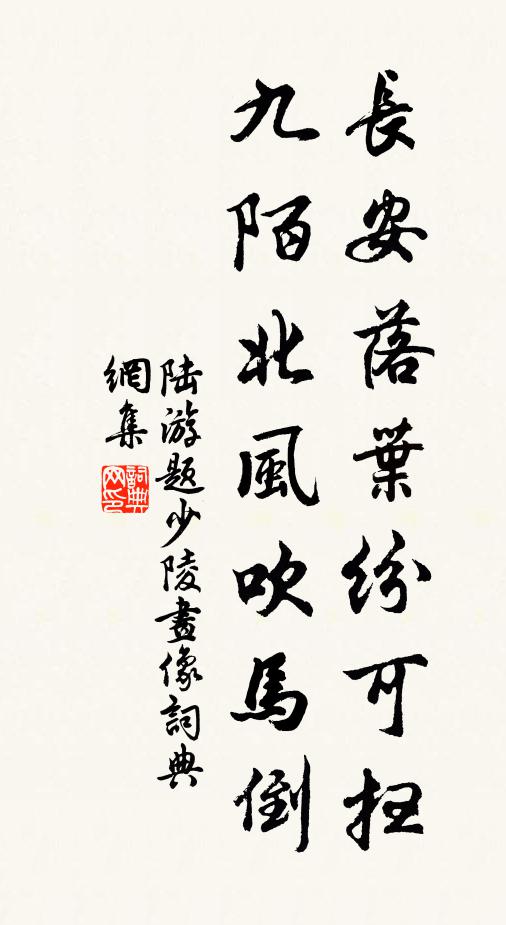 長安落葉紛可扫
九陌北風吹馬倒
陆游题少陵畫像詞典
網集
詞典网印